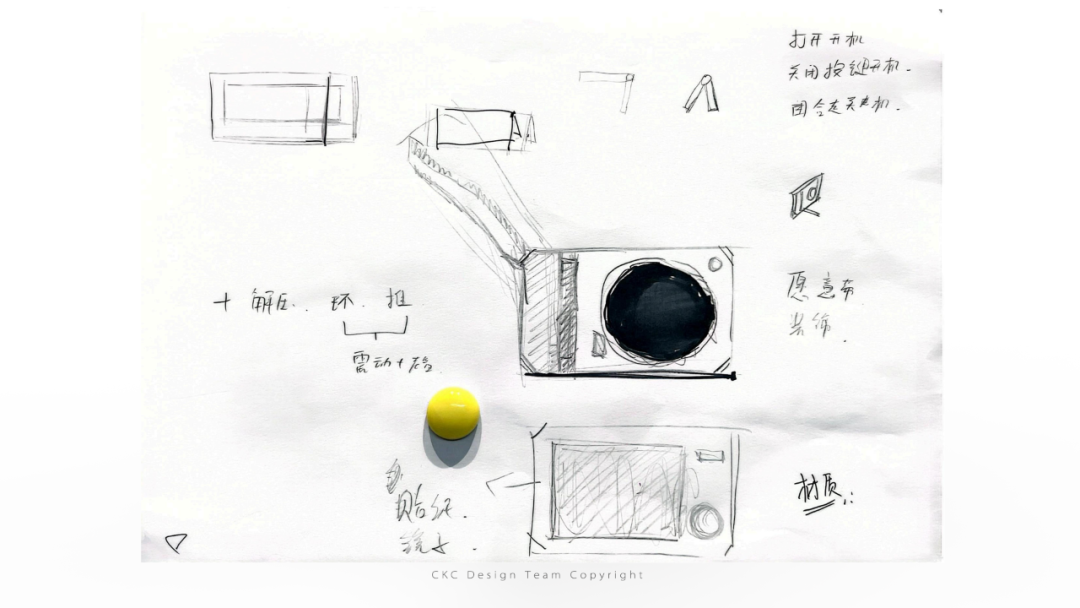 打开开机
关闭按键开机.
闭合是关机.
愿意布
装饰.
+ 解压. 环. 推
震动+
贴纸.
材质.:
CKC Design Team Copyright